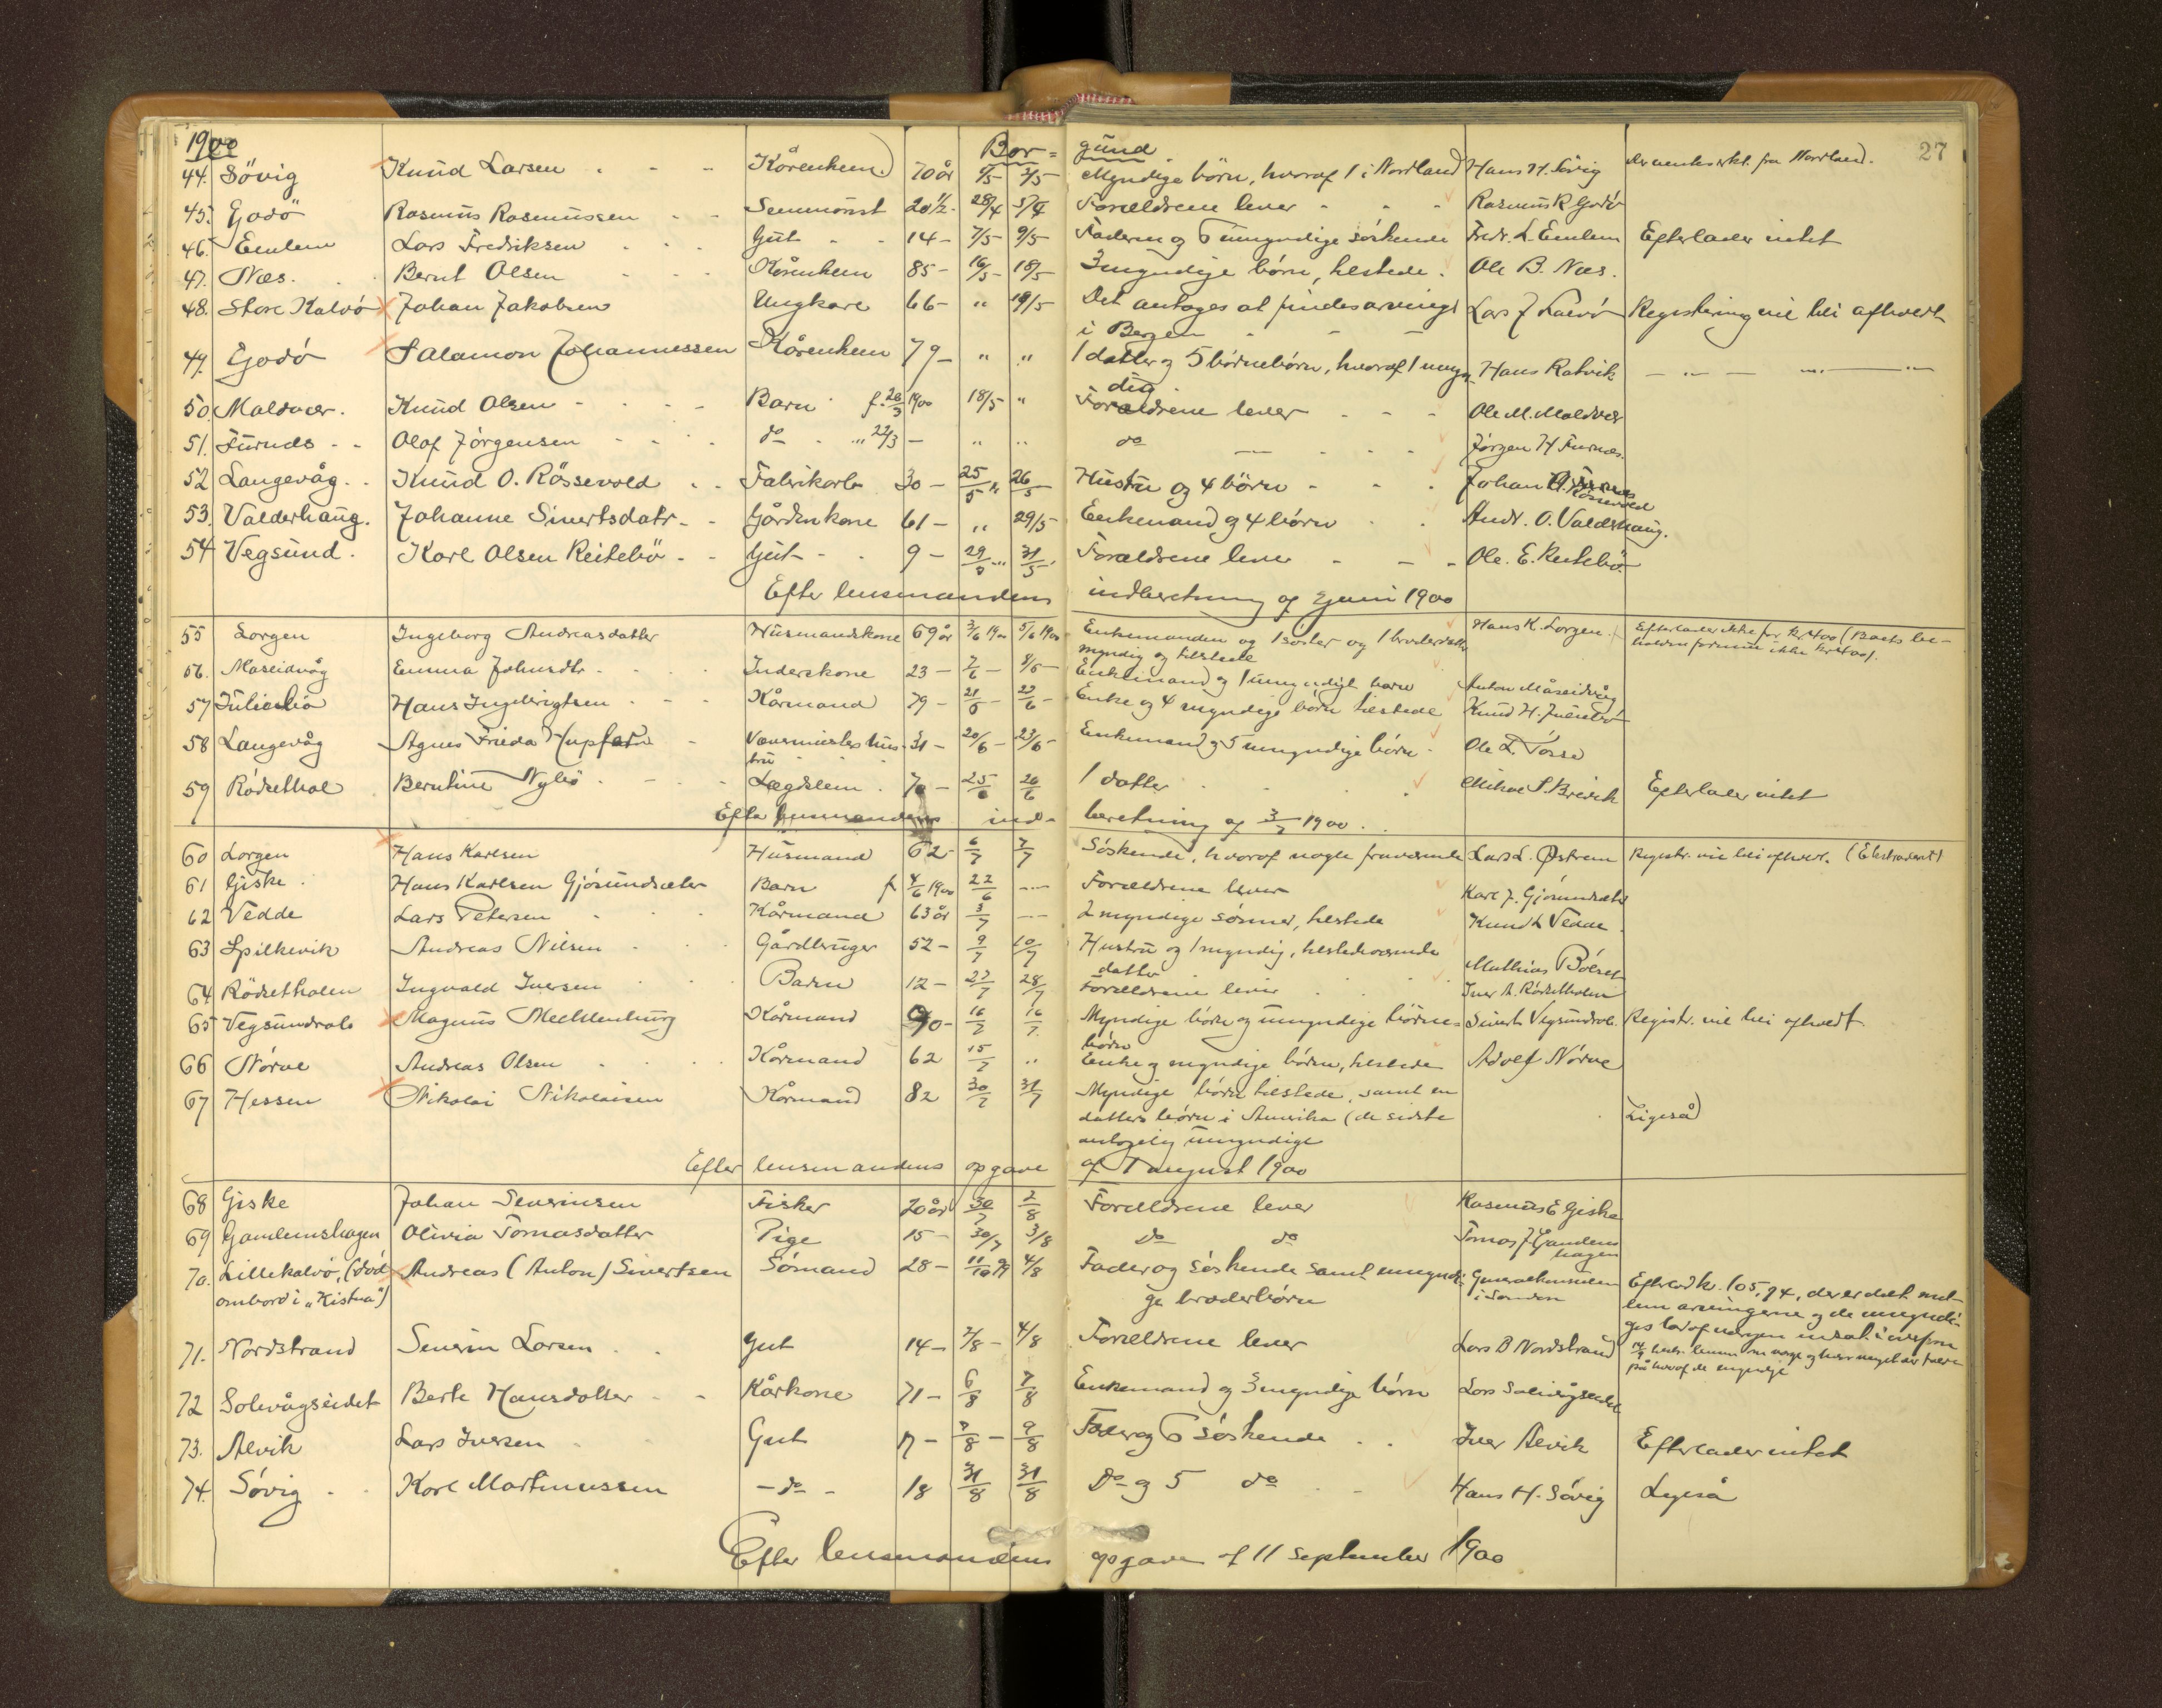 1900 Bor= gund 27
44. Sövig Knud Larsen Kårenkem 70 år 5/5 7/5 Myndige börn, hvoraf 1 i Nordland Hans H. Sövig fra Nordland.
45. Godö Rasmus Rasmussen 20½ - 28/4 Forældrene lever Rasmus R Godö
46. Emlem Lars Fredriksen Gut 14 - 7/5 - 9/5 - Faderen og 6 umyndige söskende Fredr. L. Emlem Efterlader intet
47. Næs. Bernt Olsen Kårenkem 85 - 16/5 - 18/5 3 myndige börn, tilstede. Ole B. Næs.
48. Store Kalvö Johan Jakobsen Ungkare 66 - " 19/5 - Det antages at findes arvinger Lars J Kalvö Registrering vil bli afholdt
i Bergen
49. Godö Salamon Johannessen Kårenkem 79 - " " 1 datter og 5 börnebörn, hvoraf 1 umyn Hans Ratvik — " — " — "
dig.
50. Maldvær. Knud Olsen Barn f. 20/3 1900 18/5 " Forældrene lever Ole M. Maldvær
51. Furnæs Olaf Jörgensen do " 22/3 — " " do Jörgen H Furnæs.
52 Langevåg. Knud O. Rössevold Fabrikarb. 30 - 25/5 " 26/5 Hustru og 4 börn Johan
Rössevold
53. Valderhaug. Johanne Sivertsdatr. Gårdm kone 61 - " 29/5 - Enkemand og 4 börn Andr. O. Valderhaug.
54 Vegsund. Karl Olsen Reitebö Gut 9 - 29/5 31/5 Forældrene lever Ole. E. Reitebö
Efter lensmandens indberetning af 2 juni 1900
55 Lorgen Ingeborg Andreasdatter Husmandskone 69 år 3/6 1900 5/6 1900 Enkemanden og 1 söster og 1 broderdatter Hans K. Lorgen. Efterlader ikke for kr 400 (Boets be-
myndig og tilstede holdne formue ikke kr 400).
56. Maseidvåg Emma Johnsdtr. Inderskone 23 - 7/6 - 8/6 - Enkemand og 1 umyndigt barn Anton Måseidvåg
57 Juliebö Hans Ingebrigtsen Kårmand 79 - 21/6 - 22/6 - Enke og 4 myndige börn tilstede Knud H. Juliebö
58 Langevåg Agnes Frieda Hupfer Vævemesters hus- 31 - 20/6 - 23/6 - Enkemand og 5 umyndige börn Ole L. Fosse
tru
59 Rödsethal Berntine Nybö Lægdslem 70 - 25/6 26/6 1 datter Mikal P. Breivik Efterlader intet
Efter lensmandens ind- beretning af 3/7 1900.
60 Lorgen Hans Karlsen Husmand 62 - 6/7 7/7 Söskende, hvoraf nogle fraværende Lars L. Östrem Registr. vil bli afholdt. (Ekstradert)
61 Giske. Hans Karlsen Gjösundsæter Barn f 4/6 1900 22/6 — Forældrene lever Karl J. Gjösundsæter
62 Vedde Lars Petersen Kårmand 63 år 3/7 — 2 myndige sönner, tilstede Knud L Vedde
63 Spilkevik Andreas Nilsen Gårdbruger 52 - 9/7 10/7 Hustru og 1 myndig, tilstedeværende Mathias Böset
datter
64 Rödsethalen Ingvald Iversen Barn 12 - 27/7 28/7 Forældrene lever Iver A. Rödsethalen
65 Vegsundrab Magnus Mecklenburg Kårmand 90 - 16/7 16/7 Myndige börn og umyndige börne- Sivert Vegsundrab. Registr. vil bli afholdt
börn
66 Nörve Andreas Olsen Kårmand 62 15/7 " Enke og myndige börn, tilstede Adolf Nörve
67 Hessen Nikolai Nikolaisen Kårmand 82 30/7 31/7 Myndige börn tilstede, samt en Ligeså
datters börn i Amerika (de sidste
antagelig umyndige
Efter lensmandens opgave af 1 august 1900
68 Giske Johan Severinsen Fisker 20 år 30/7 2/8 Forældrene lever Rasmus E Giske
69 Gamlemshagen Olivia Tomasdatter Pige 15 - 30/7 3/8 do do Tomas J Gamlems
hagen
70. Lillekalvö, (död Andreas (Anton) Sivertsen Sömand 28 - 11/10 99 4/8 Fader og söskende samt umyndi- Generalkonsulen Efterlod kr. 105,94, der er delt mel-
ombord i "Kistna") ge broderbörn i London lem arvingerne og de umyndi-
71. Nordstrand Severin Larsen Gut 14 - 2/8 - 4/8 Forældrene lever Lars B Nordstrand
72 Solevågseidet Berte Hansdatter Kårkone 71 - 6/8 7/8 Enkemand og 3 myndige börn Lars Solevågseidet
73. Alvik Lars Iversen Gut 17 - 7/8 - 9/8 Fader og 6 söskende Iver Alvik Efterlader intet
74. Sövig Karl Martinussen - do - 18 31/8 31/8 Do og 5 do Hans H. Sövig Ligeså
Efter lensmandens opgave af 11 september 1900